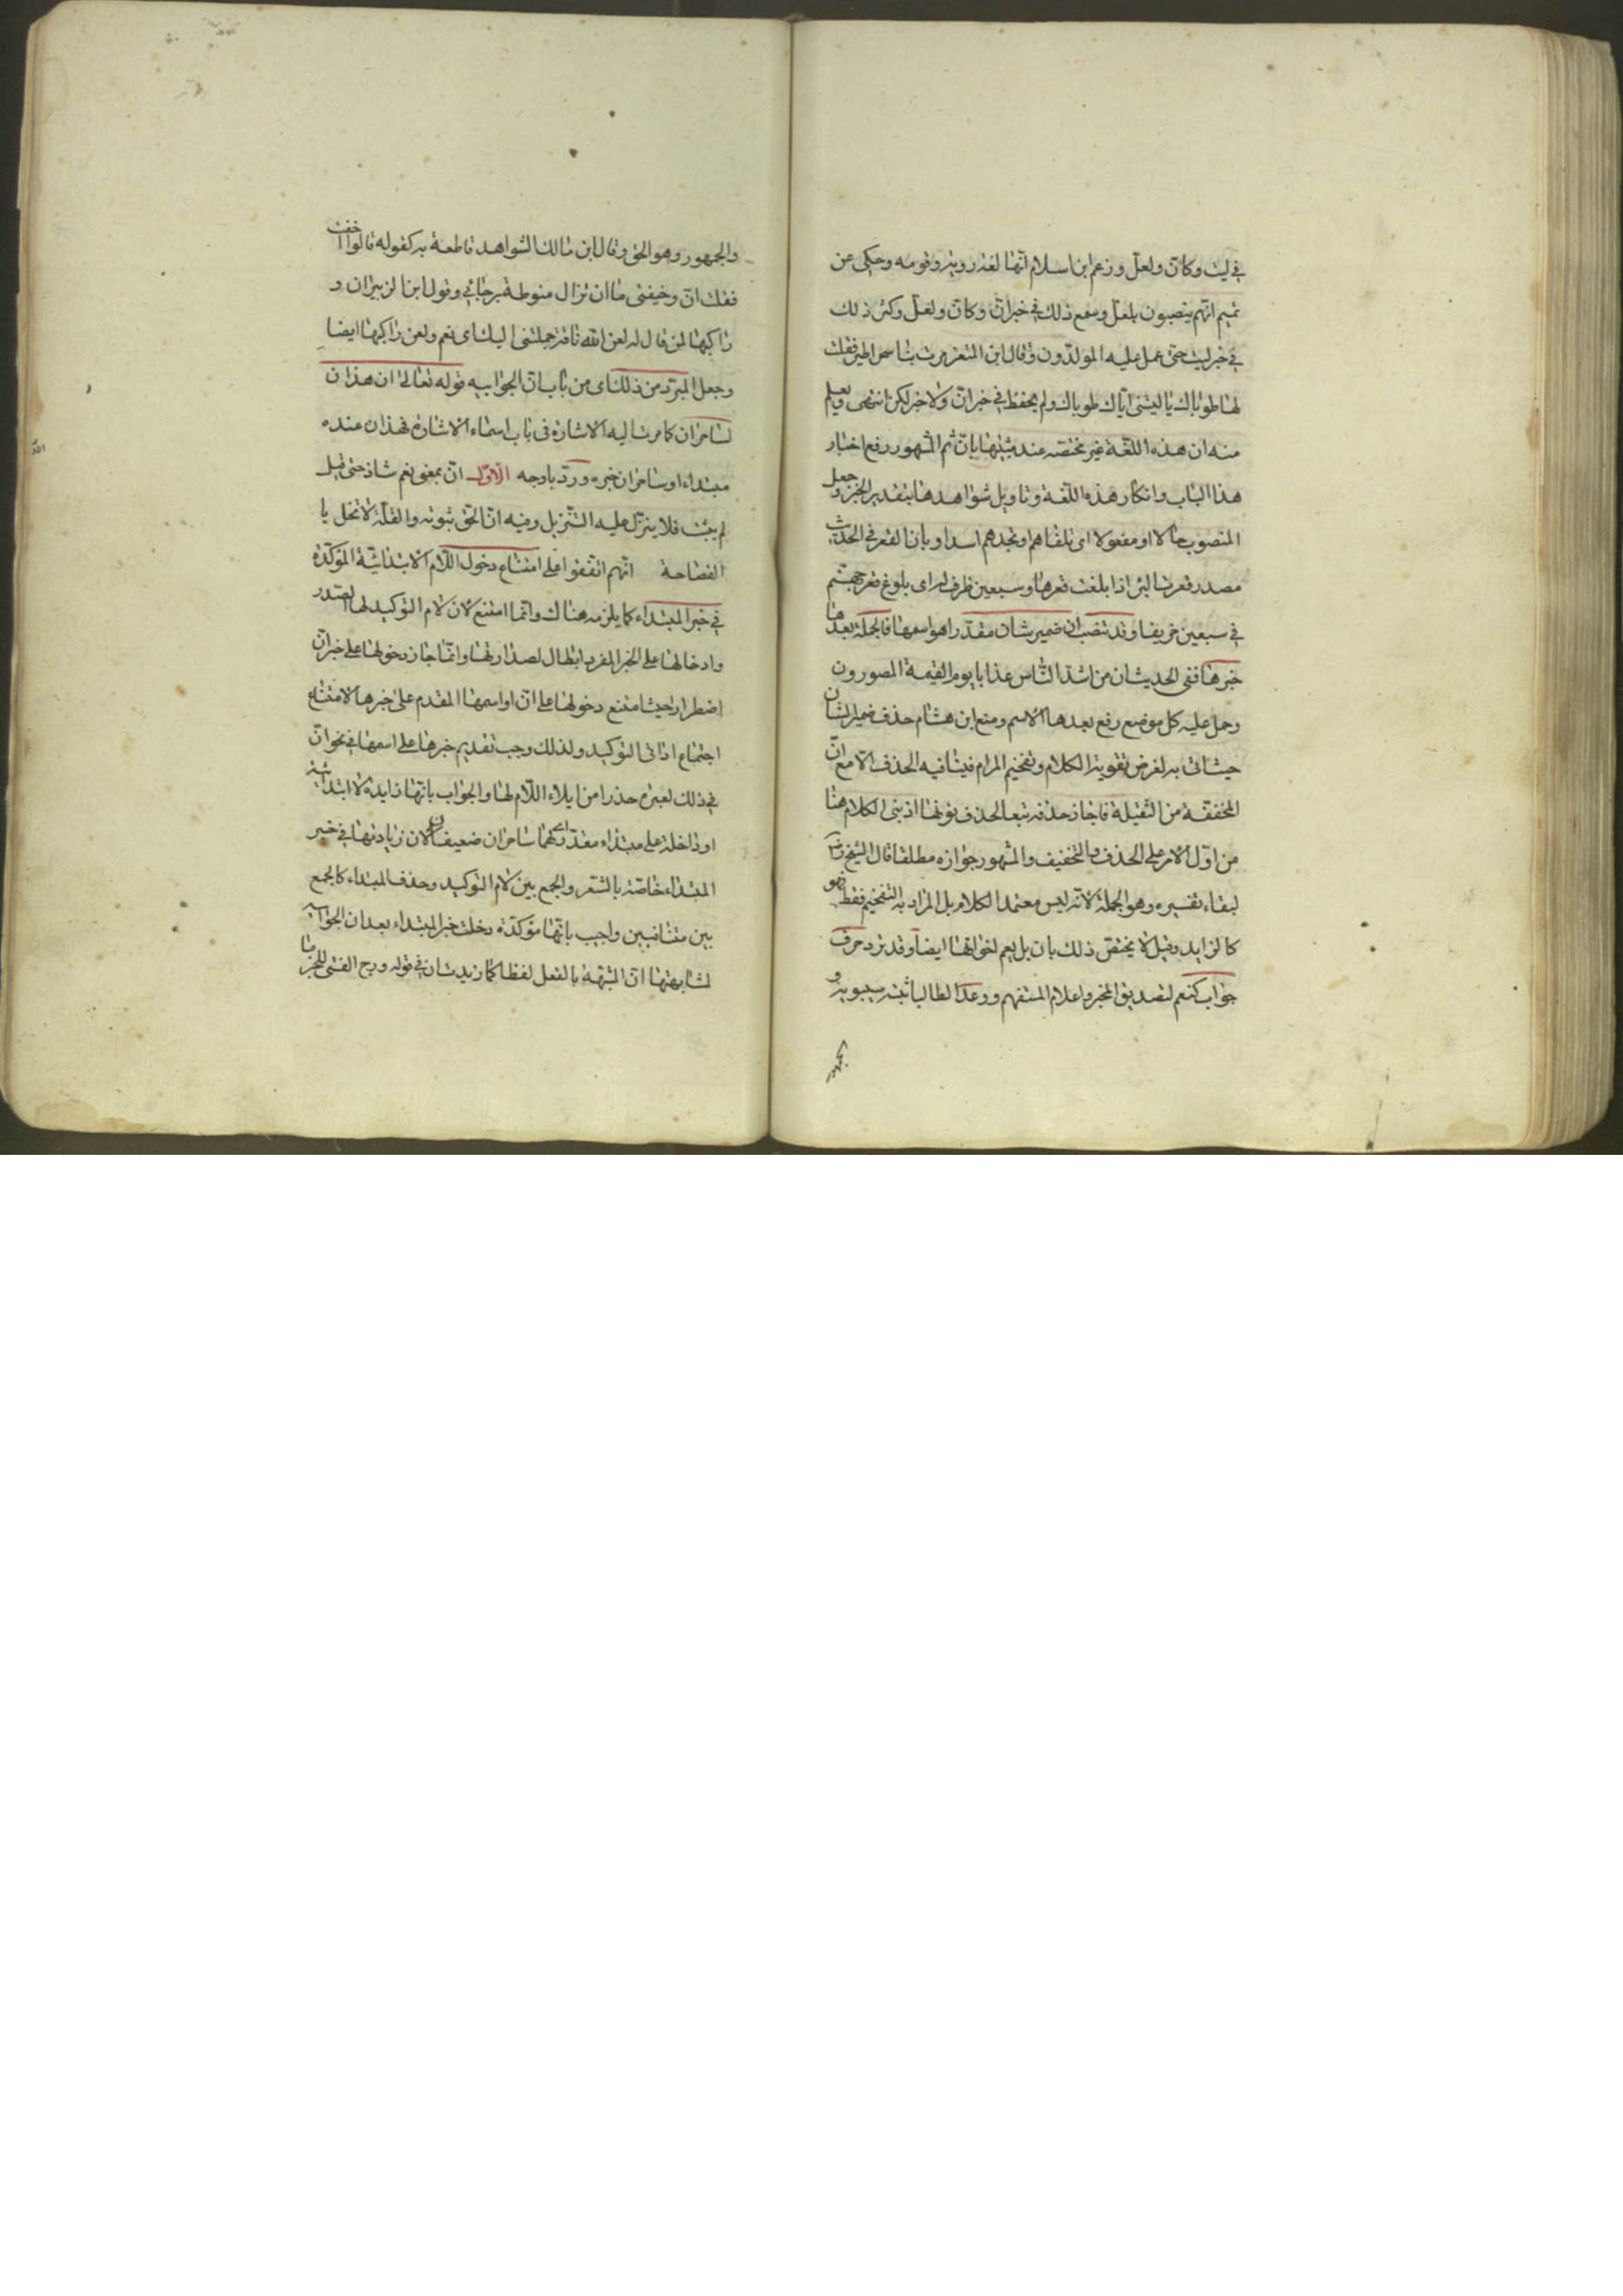 في ليت وكان ولعل وزعم ابن اسلام انها لغة روبة وقومه وحكى عن
تميم انهم ينصبون بلعل وسمع ذلك في خبر انّ وكانّ ولعلّ وكثر ذلك
في خبر ليت حتى عمل عليه المولدون وقال ابن المعتز مرت بنا سحرا طير فقلت
لها طوباك يا ليتني اياك طوباك ولم يحفظ في خبر انّ ولا خبر لكن انتهى ويعلم
منه ان هذه اللغة غير مختصة عند مثبتها بانّ ثم المشهور رفع اخبار
هذا الباب وانكار هذه اللغة وتاويل شواهدها بتقدير الخبر وجعل
المنصوب حالا او مفعولا اى تلقاهم او تجدهم اسدا وبان القعر في الحديث
مصدر قعرت البئر اذا بلغت قعرها وسبعين ظرف اى بلوغ قعر جهنم
في سبعين خريفا وقد تنصب ان ضمير شان مقدرا هو اسمها فالجملة بعدها
خبرها ففي الحديث ان من اشد الناس عذابا يوم القيمة المصورون
وحمل عليه كل موضع رفع بعدها الاسم ومنع ابن هشام حذف ضمير الشان
حيث اتى به لغرض تقوية الكلام وتفخيم المرام فينافيه الحذف الا مع انّ
المخففة من الثقيلة فاجاز حذفه تبعا لحذف نونها اذ بنى الكلام هنا
من اول الامر على الحذف والتخفيف والمشهور جوازه مطلقا قال الشيخ
لبقاء تفسيره وهو الجملة لانه ليس معتمد الكلام بل المراد به التفخيم فقط فهو
كالزايد وقيل لا يختص ذلك بان بل يعم اخواتها ايضا وقد ترد حرف
جواب كنعم لتصديق المخبر واعلام المستفهم ووعد الطالب اثبته سيبويه و
والجمهور وهو الحق وقال ابن مالك الشواهد قاطعة به كقوله قالوا اخفت
فقلت انّ وخيفتي ما ان تزال منوطة برجائي وقول ابن الزبير ان و
راكبها لمن قال له لعن الله ناقة حملتني اليك اى نعم ولعن راكبها ايضا
وجعل المبرد من ذلك اى من باب ان الجوابيه قوله تعالى ان هذان
لساحران كما مرت اليه الاشارة في باب اسماء الاشارة فهذان عنده
مبتداء وساحران خبره وردّ باوجه الاوّل انّ بمعنى نعم شاذ حتى قيل
لم يثبت فلا ينزل عليه التنزيل وفيه ان الحق ثبوته والقلة لا تخل با
الفصاحة انهم اتفقوا على امتناع دخول اللام الابتدائية المؤكدة
في خبر المبتداء كما يلزمه هناك وانما امتنع لان لام التوكيد لها الصدر
وادخالها على الخبر المفرد ابطال لصدارتها وانما جاز دخولها على خبر ان
اضطرارا حيث امتنع دخولها على ان او اسمها المقدم على خبرها لامتناع
اجتماع اداتى التوكيد ولذلك وجب تقديم خبرها على اسمها في نحو انّ
في ذلك لعبرة حذرا من ايلاء اللام لها والجواب بانها زايدة لا ابتدائية
او داخلة على مبتداء مقدر اى لهما ساحران ضعيفان لان زيادتها في خبر
المبتداء خاصة بالشعر والجمع بين لام التوكيد وحذف المبتداء كالجمع
بين متنافيين واجيب بانها مؤكدة دخلت خبر المبتداء بعد ان الجوابية
لشابهتها ان المشبهة بالفعل لفظا كما زيدت ان في قوله ورج الفتى للخير ما